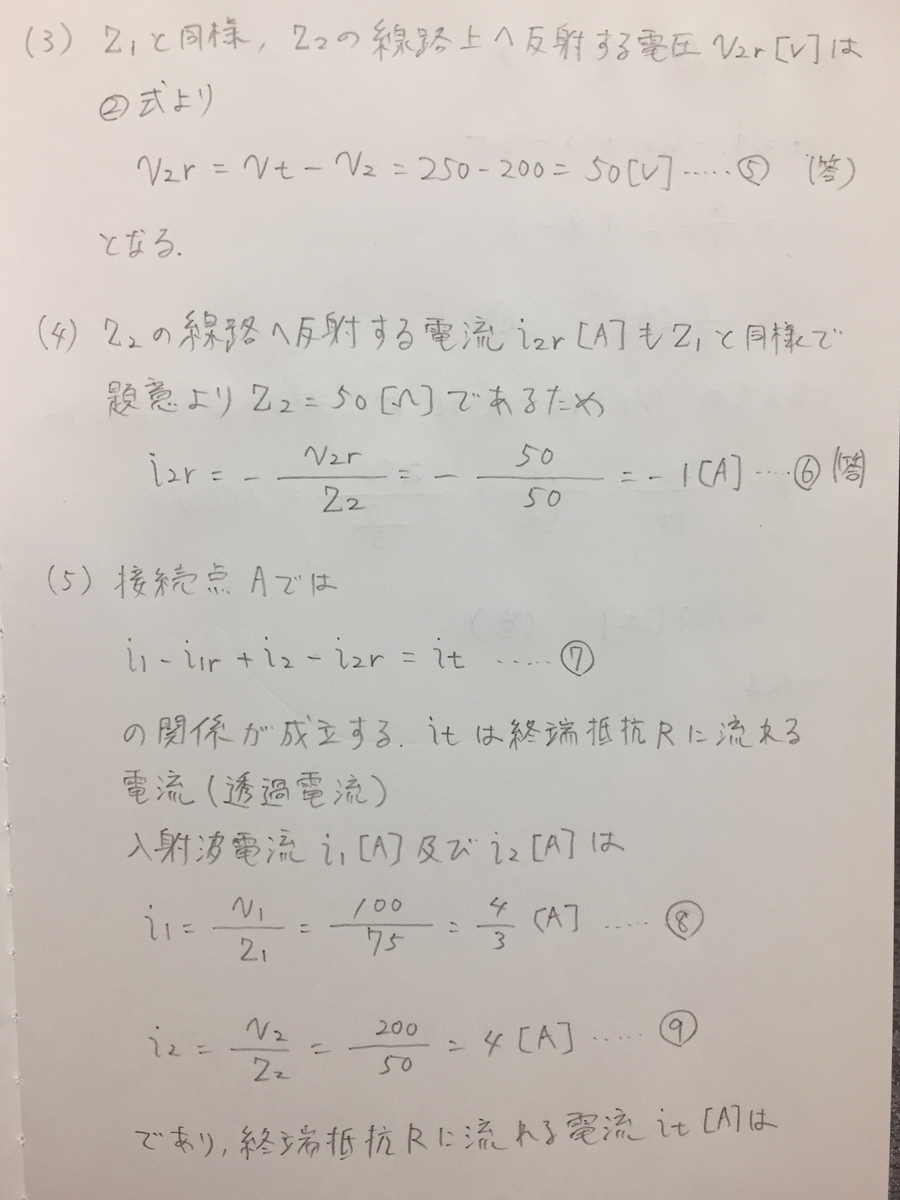 (3) Z₁と同様, Z₂の線路上へ反射する電圧 V₂r[V]は
②式より
V₂r = Vt - V₂ = 250 - 200 = 50[V] ..... ⑤ (答)
となる.
(4) Z₂の線路へ反射する電流 i₂r[A]もZ₁と同様で
題意より Z₂ = 50[Ω]であるため
i₂r = - V₂r/Z₂ = - 50/50 = - 1[A] .... ⑥ (答)
(5) 接続点 Aでは
i₁ - i₁r + i₂ - i₂r = it ..... ⑦
の関係が成立する. itは終端抵抗Rに流れる
電流(透過電流)
入射波電流 i₁[A]及び i₂[A]は
i₁ = V₁/Z₁ = 100/75 = 4/3 [A] ..... ⑧
i₂ = V₂/Z₂ = 200/50 = 4[A] ..... ⑨
であり, 終端抵抗Rに流れる電流 it[A]は